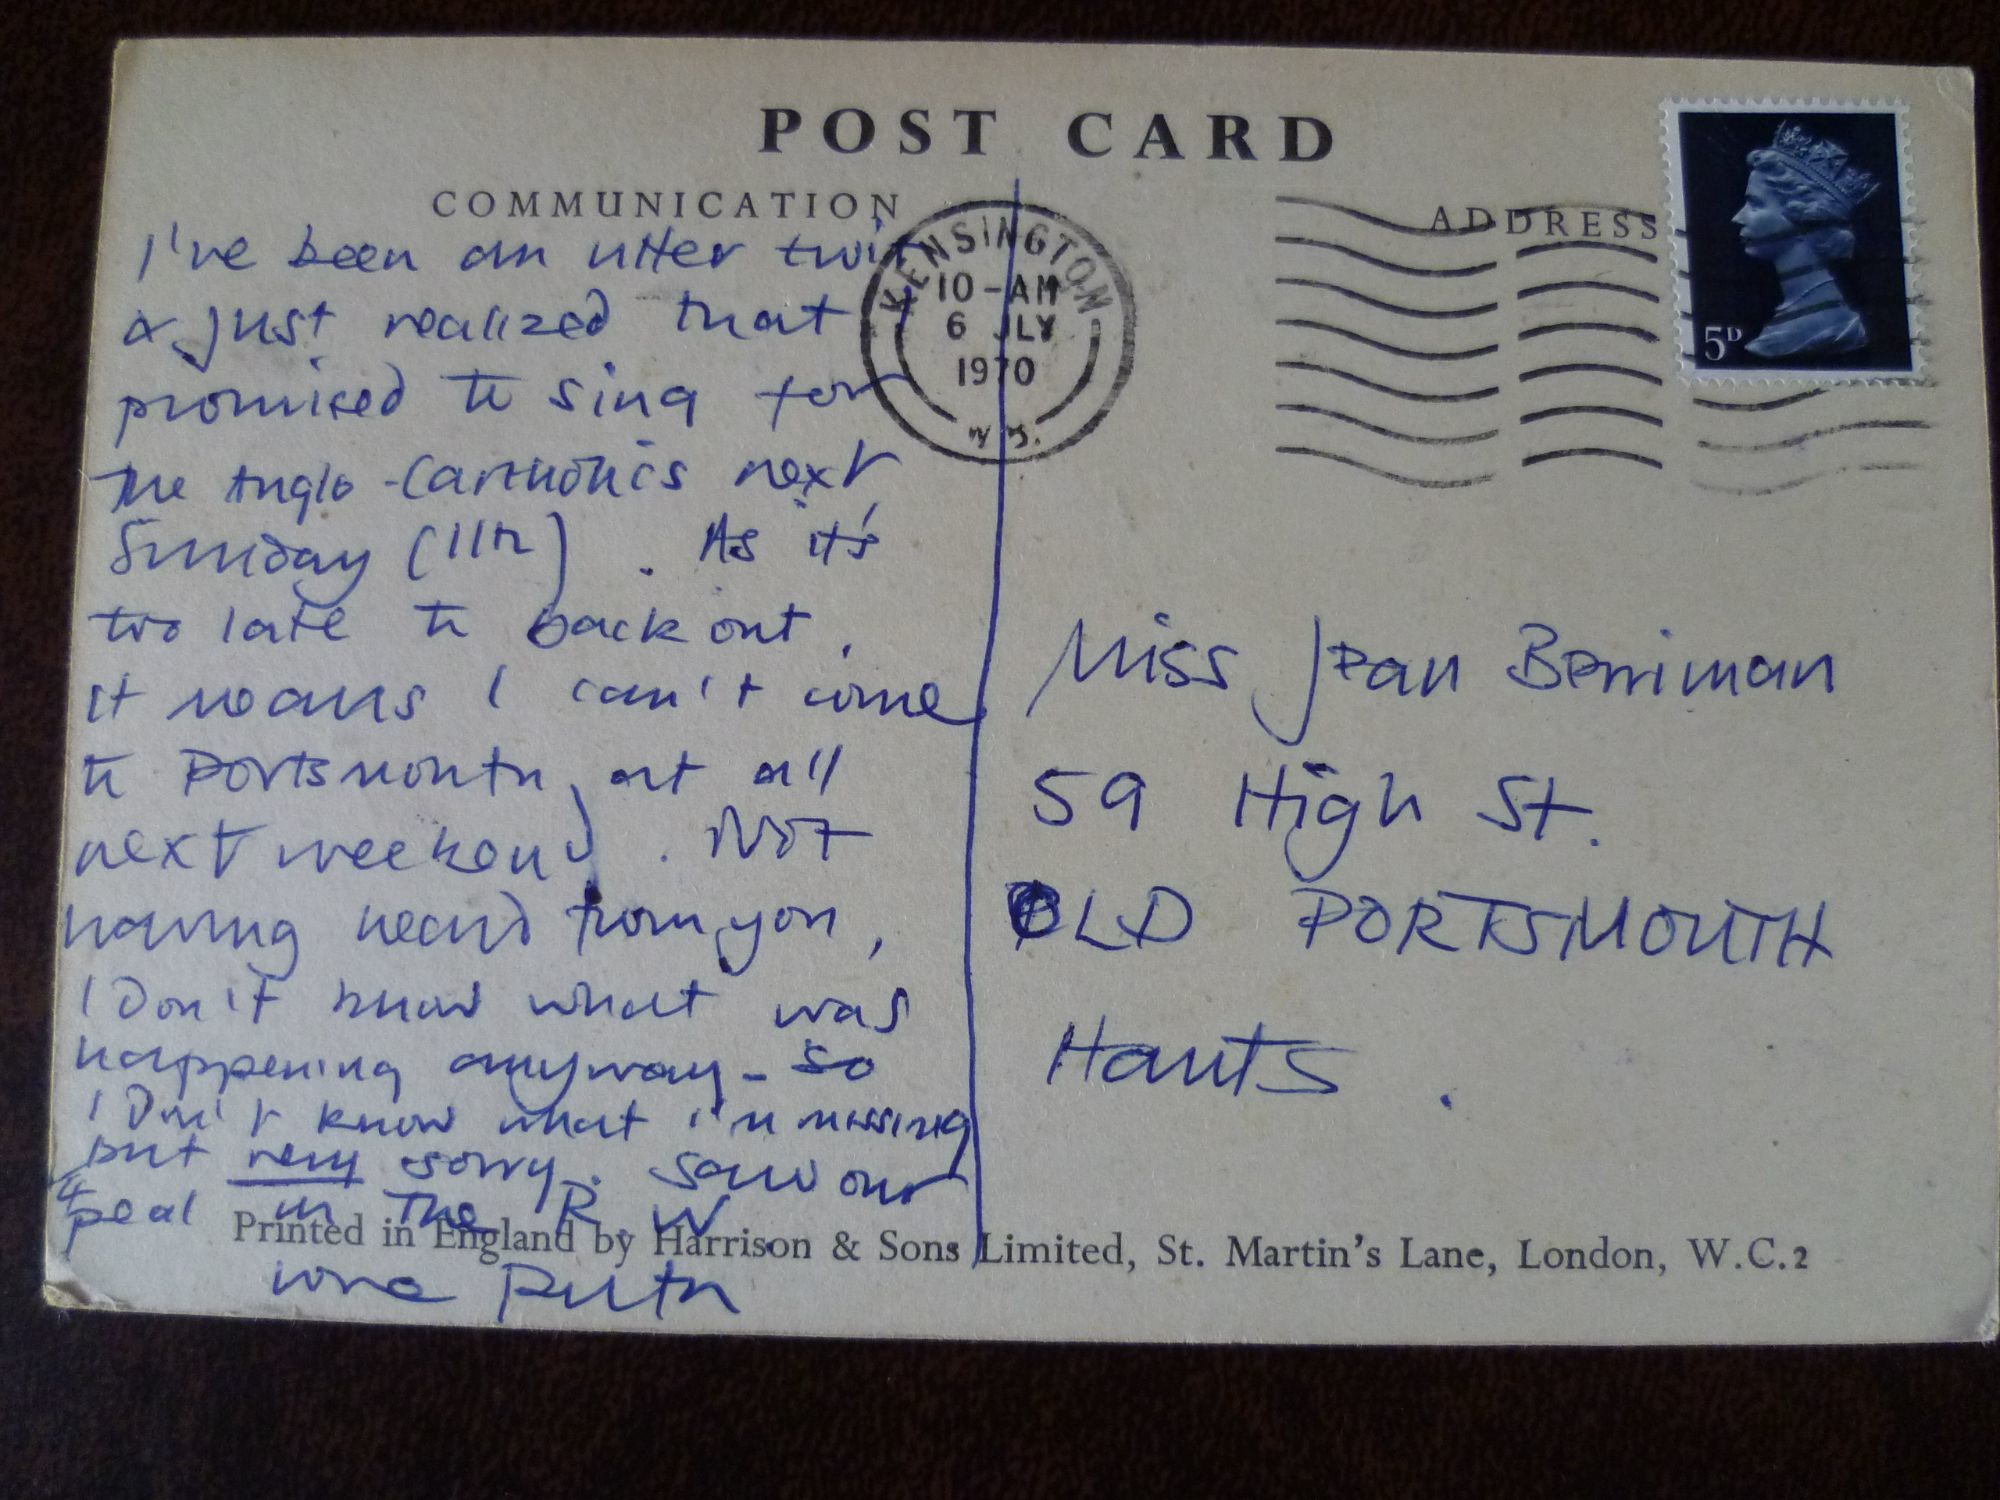 POST CARD
COMMUNICATION
ADDRESS
KENSINGTON
10-AM
6 JLY
1970
W.8.
5D
I've been an utter twit
& just realized that I
promised to sing for
the Anglo-Catholics next
Sunday (11th). As it's
too late to back out,
it means I can't come
to Portsmouth at all
next weekend. Not
having heard from you,
I don't know what was
happening anyway - so
I don't know what I'm missing
but very sorry. Saw our
peal in the R.W.
love Ruth
Miss Jean Berriman
59 High St.
OLD PORTSMOUTH
Hants.
Printed in England by Harrison & Sons Limited, St. Martin's Lane, London, W.C.2